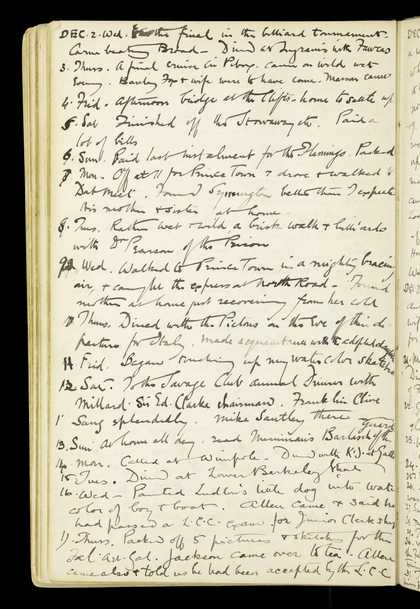 DEC. 2. Wed. the final in the billiard tournament
Came beating Broad – Dined at Ingram's with Fawces
3. Thurs. A final cruise in Peboy. Came on wild wet
Evening. Bewley Fox & wife were to have come. Massas came
4. Frid. Afternoon bridge at the Cliftos. home to settle up
5. Sat Finished off the Stowaway etc. Paid a
lot of bills
6. Sun. Paid last instalment for the Flamingo. Packed
7. Mon – Off at 11 for Prince Town & drove & walked to
Dartmeet. Found better than I expected
his mother & sister at home
8. Tues. Rather wet & wild, a brisk walk & billiards
with Dr Pearson of the Prison
9. Wed. Walked to Prince Town in a mighty bracing
air, & caught the express at North Road – Found
mother at home just recovering from her cold
10 Thurs. Dined with the Pictons on the Eve of their de-
parture for Italy. made acquaintance with adopted daughter
11 Frid. Began touching up my water color sketches
12 Sat. To the Savage Club annual Dinner with
Millard. Sir Ed. Clarke chairman. Franklin Clive
Sang splendidly. Mike Santley there
13. Sun. At home all day. read Merriman's Barlasch of the Guard
14. Mon. Called at Wimpole. Dined with K.J. at Gatti
15. Tues. Dined at Lower Berkeley Street
16. Wed – Painted Ludlow's little dog into water
color of boy & boat. Allen came & said he
had passed a L.C.C. Exam for Junior Clerkship
17. Thurs. Packed off 5 pictures & sketches for the
Art. Gal. Jackson came over to tea. Allen
came also & told us he had been accepted by the L.C.C